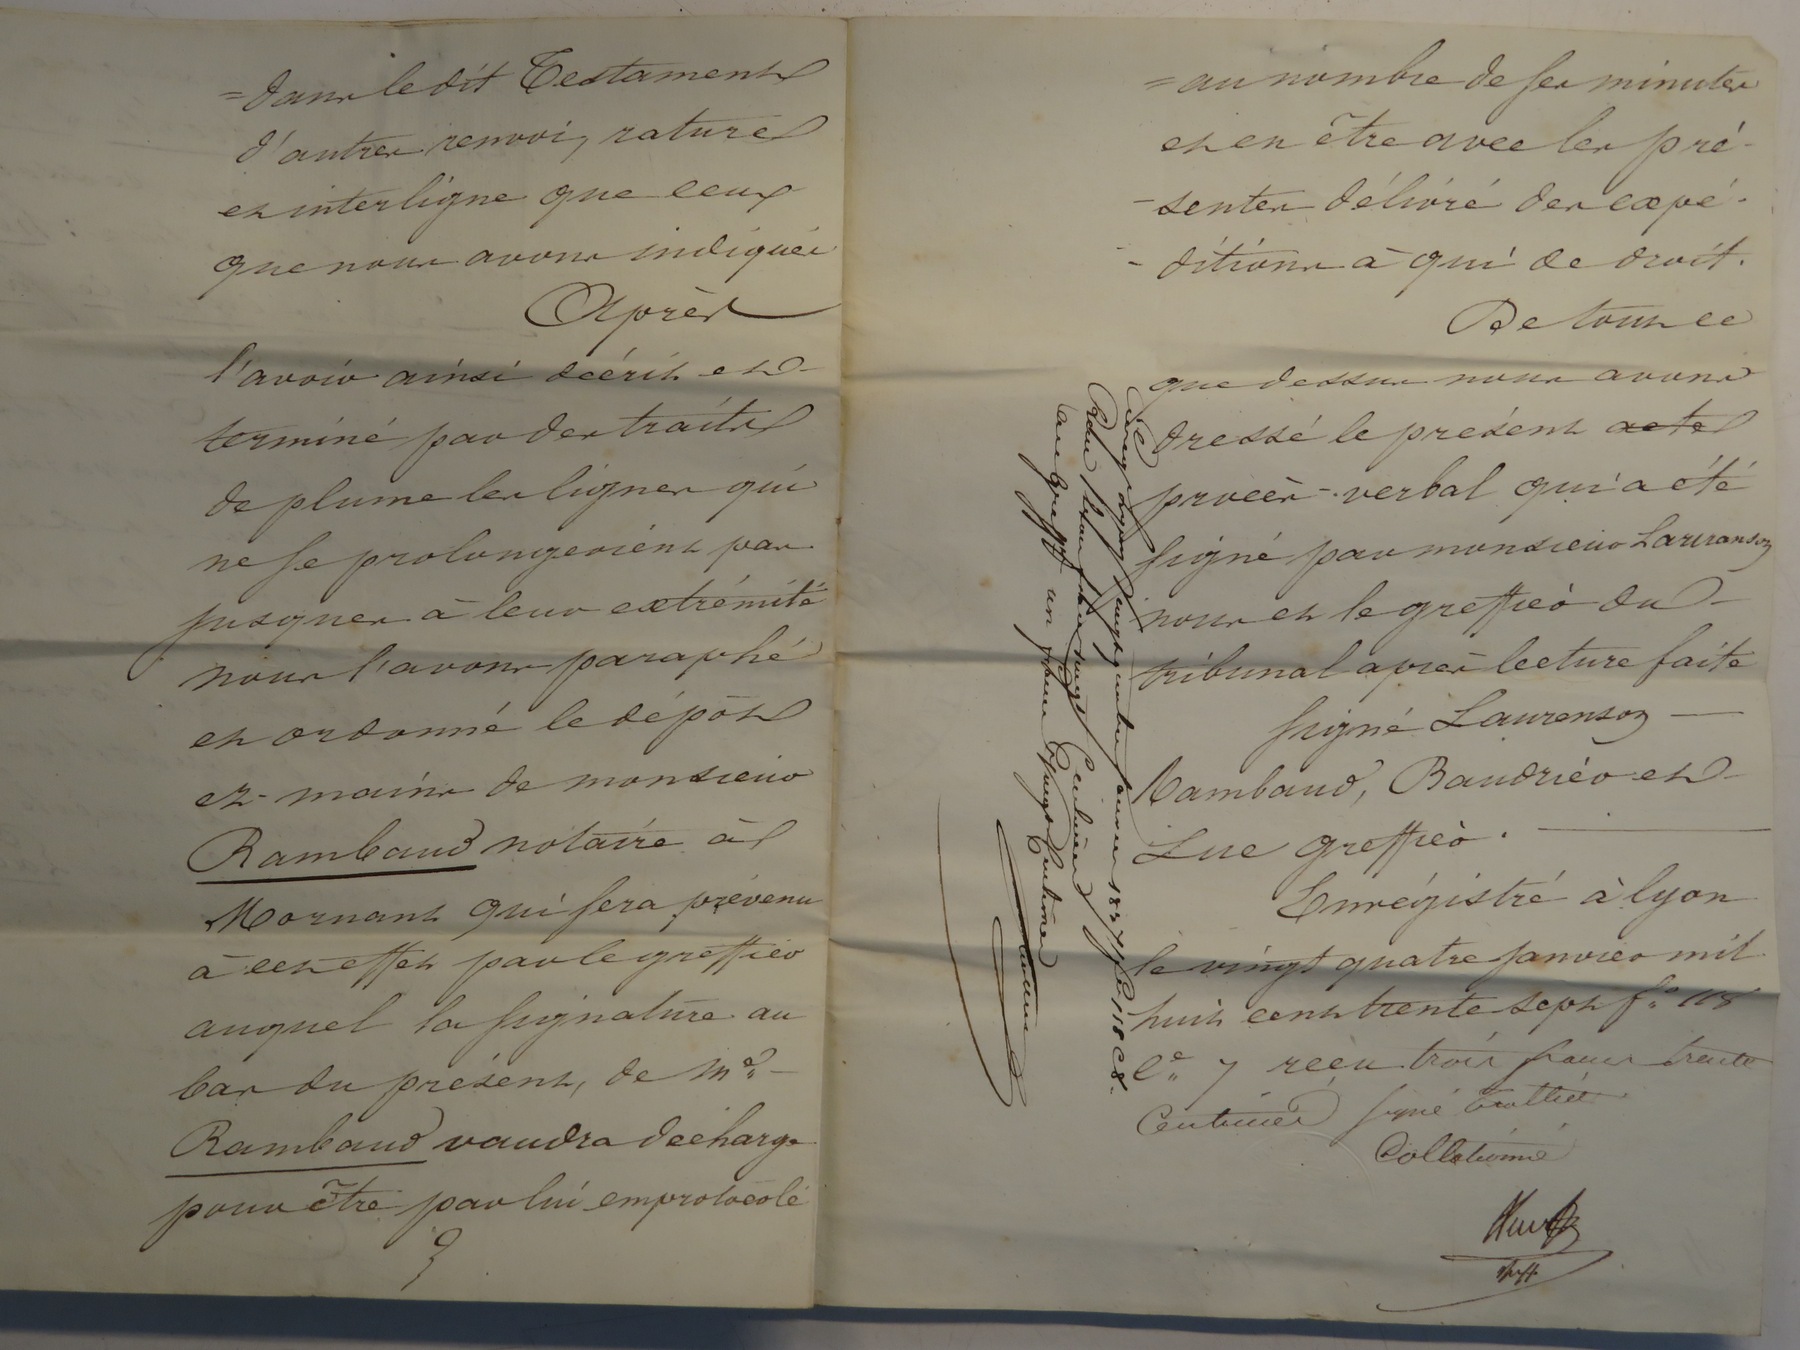 = dans le dit Testament
d'autres renvoi, rature
et interligne que ceux
que nous avons indiqués
Après
l'avoir ainsi décrit et
terminé par des traits
de plume les lignes qui
ne se prolongeoient pas
jusques à leur extrémité
nous l'avons paraphé
et ordonné le dépôt
ez-mains de monsieur
Rambaud notaire à
Mornant qui sera prévenu
à cet effet par le greffier
auquel la signature au
bas du présent, de Me.
Rambaud vaudra décharge
pour être par lui emprotocolé
= au nombre de ses minutes
et en être avec les pré-
- sentes délivré des expé-
- ditions à qui de droit.
De tout ce
que dessus nous avons
dressé le présent acte
procès-verbal qui a été
signé par monsieur Laurenson
nous et le greffier du
tribunal après lecture faite
signé Laurenson —
Rambaud, Baudrier et
Luc greffier.
Enrégistré à lyon
le vingt quatre janvier mil
huit cent trente sept f° 118
Ce. 7 reçu trois francs trente
centimes signé
Collationné
Enreg. à Lyon vingt quatre janvier 1837 f° 118 C8.
Reçu trois francs vingt centimes
au greffe un franc vingt centimes